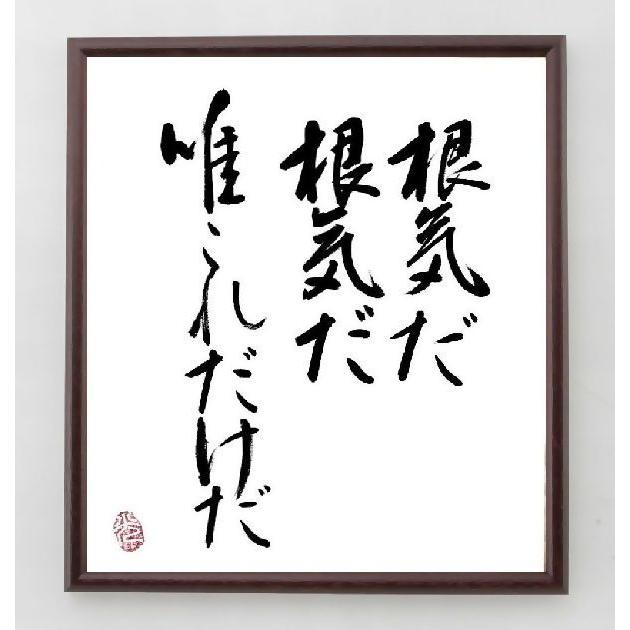 根気だ
根気だ
唯これだけだ